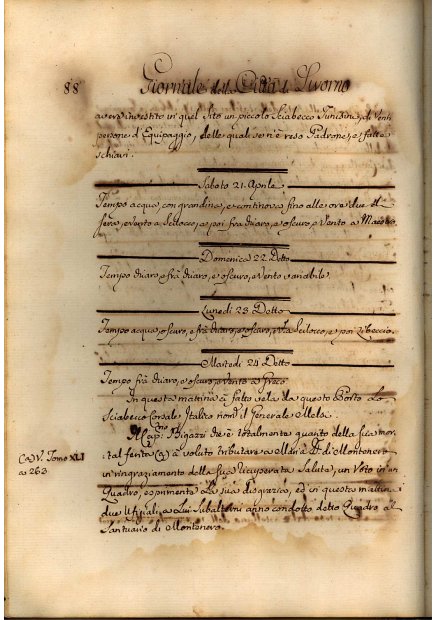 88 Giornale della Città di Livorno
avere investito in quel sito un piccolo Sciabecco Tunisino, di Venti
persone d'Equipaggio, delle quali se n'è reso Padrone, e fatte
schiavi.
Sabato 21. Aprile
Tempo acqua, con grandina, e continova fino alle ore due di
sera, e vento a Scilocco, e poi fra chiaro, e oscuro, e Vento a Maestro.
Domenica 22. Detto
Tempo chiaro, e frà chiaro, e oscuro, e Vento variabile.
Lunedì 23. Detto
Tempo acqua, oscuro, e frà chiaro, e oscuro, e Va Scilocco, e poi Libeccio.
Martedì 24. Detto
Tempo frà chiaro, e oscuro, e Vento a Greco
In questa mattina à fatto vela da questo Porto Lo
Sciabecco Corsale Italico nom.º il Generale Mella.
Il Cap.no Bigazzi che è totalmente guarito della sua mor-
tal ferita (a) à voluto tributare a Maria di Montenero
in ringraziamento della sua ricuperata Salute, un Voto in un
Quadro, esprimente La sua disgrazia, ed in questa mattina
due Uffiziali a Lui Subalterni anno condotto detto Quadro al
Santuario di Montenero.
(a) V. Tomo XLI
a 263